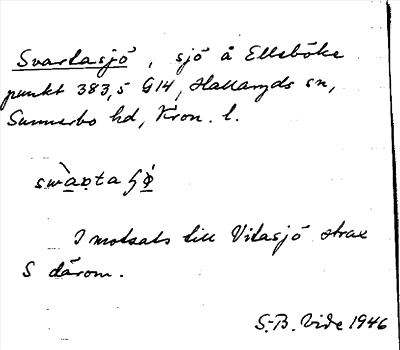 Svartasjö, sjö å Ellsböke
punkt 383,5 G14, Hallaryds sn,
Sunnerbo hd, Kron. l.
I motsats till Vitasjö strax
S därom.
S.-B. Vide 1946